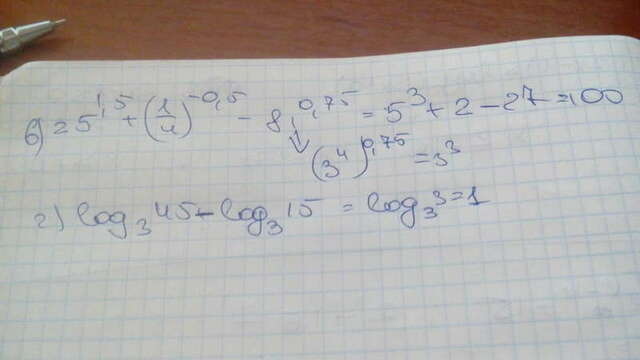 в) 25^1,5 + (1/4)^-0,5 - 81^0,75 = 5^3 + 2 - 27 = 100
(3^4)^0,75 = 3^3
г) log_3 45 - log_3 15 = log_3 3 = 1